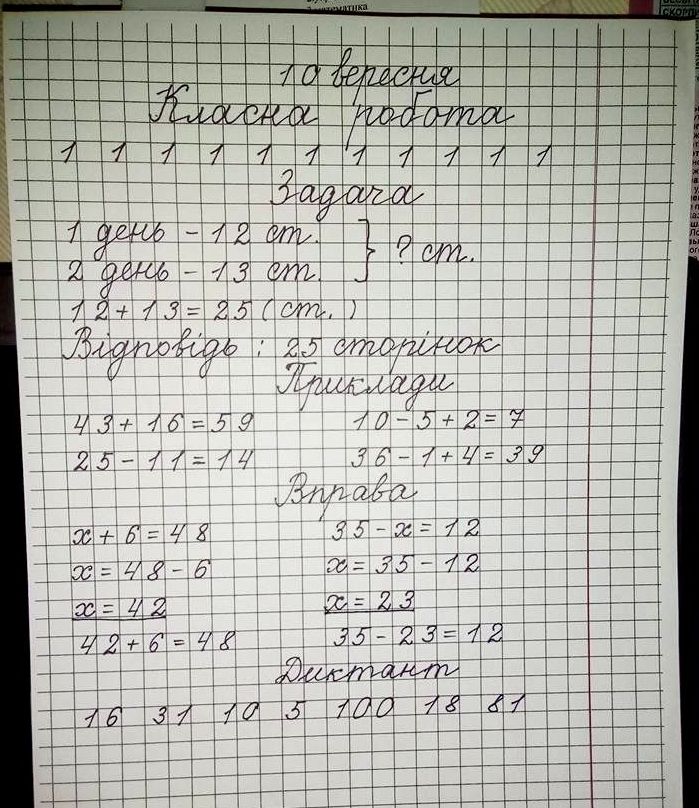 математика
10 вересня
Класна робота
1 1 1 1 1 1 1 1 1 1 1
Задача
1 день – 12 ст.
2 день – 13 ст.
} ? ст.
12 + 13 = 25 (ст.)
Відповідь : 25 сторінок
Приклади
43 + 16 = 59 10 – 5 + 2 = 7
25 – 11 = 14 36 – 1 + 4 = 39
Вправа
x + 6 = 48 35 – x = 12
x = 48 – 6 x = 35 – 12
x = 42 x = 23
42 + 6 = 48 35 – 23 = 12
Диктант
16 31 10 5 100 18 81